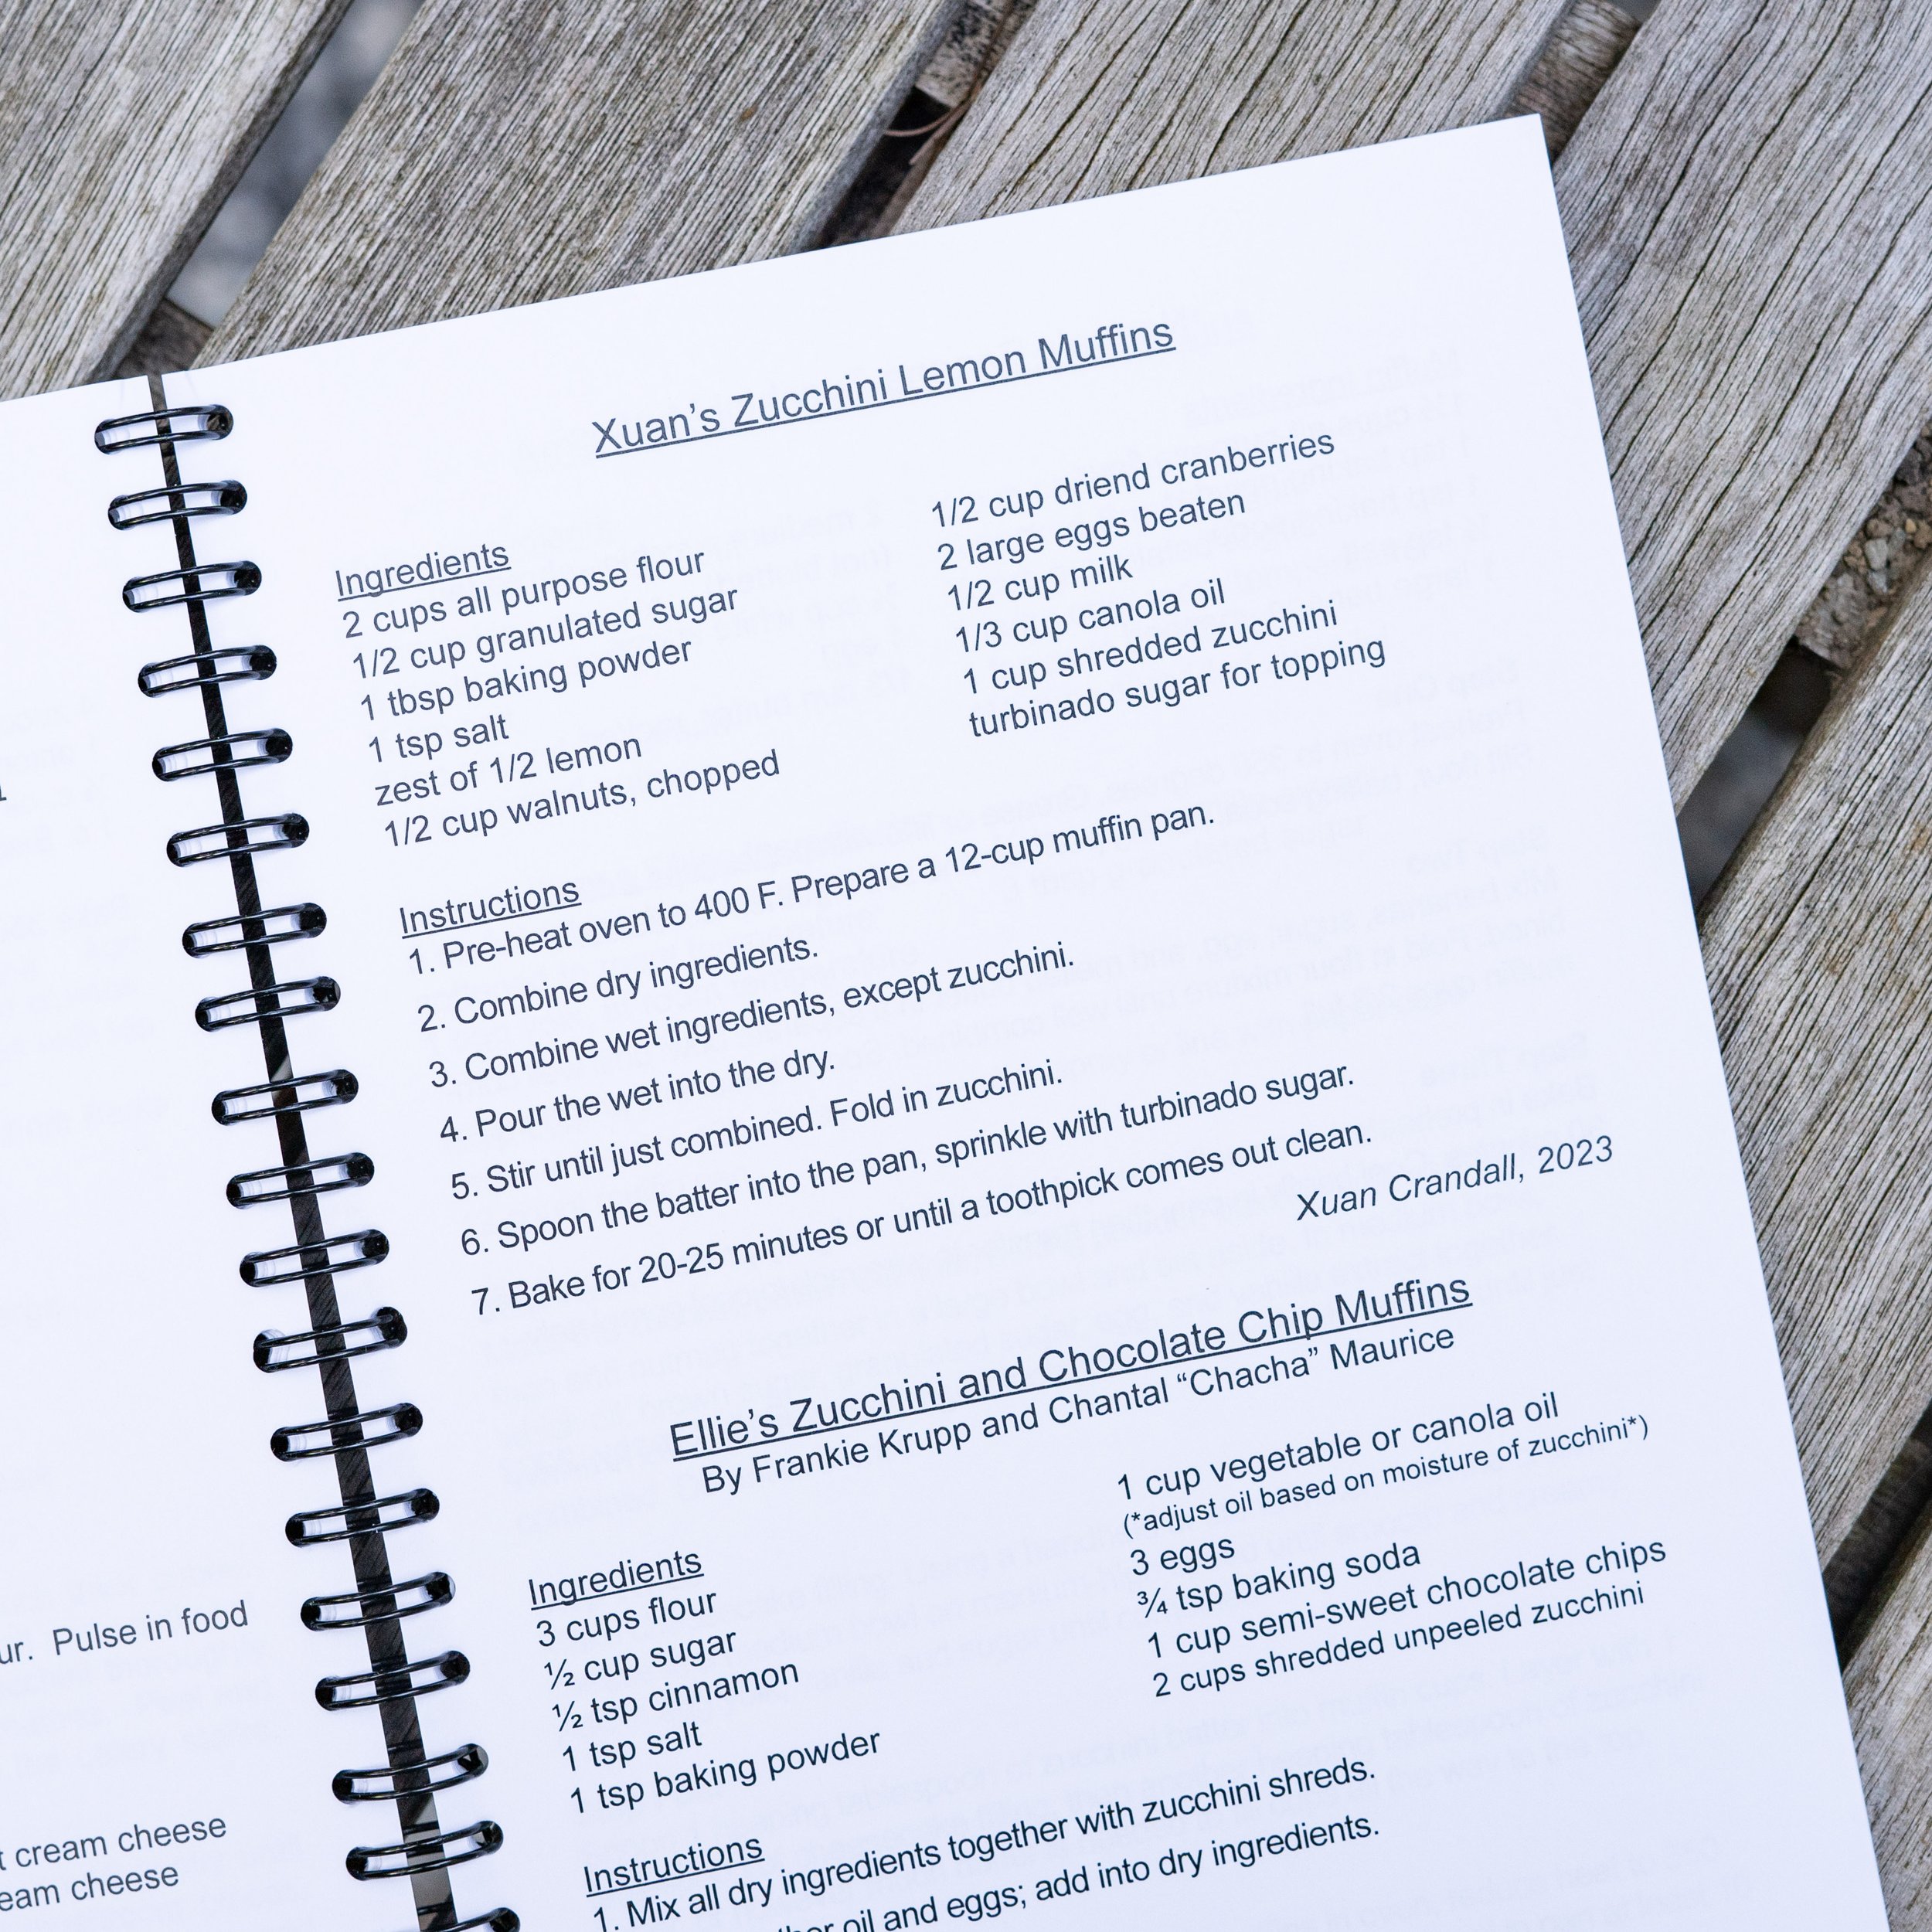 Xuan's Zucchini Lemon Muffins
Ingredients
2 cups all purpose flour
1/2 cup granulated sugar
1 tbsp baking powder
1 tsp salt
zest of 1/2 lemon
1/2 cup walnuts, chopped
1/2 cup driend cranberries
2 large eggs beaten
1/2 cup milk
1/3 cup canola oil
1 cup shredded zucchini
turbinado sugar for topping
Instructions
1. Pre-heat oven to 400 F. Prepare a 12-cup muffin pan.
2. Combine dry ingredients.
3. Combine wet ingredients, except zucchini.
4. Pour the wet into the dry.
5. Stir until just combined. Fold in zucchini.
6. Spoon the batter into the pan, sprinkle with turbinado sugar.
7. Bake for 20-25 minutes or until a toothpick comes out clean.
Xuan Crandall, 2023
Ellie's Zucchini and Chocolate Chip Muffins
By Frankie Krupp and Chantal “Chacha” Maurice
Ingredients
3 cups flour
½ cup sugar
½ tsp cinnamon
1 tsp salt
1 tsp baking powder
1 cup vegetable or canola oil
(*adjust oil based on moisture of zucchini*)
3 eggs
¾ tsp baking soda
1 cup semi-sweet chocolate chips
2 cups shredded unpeeled zucchini
Instructions
1. Mix all dry ingredients together with zucchini shreds.
oil and eggs; add into dry ingredients.
Pulse in food
cream cheese
cheese